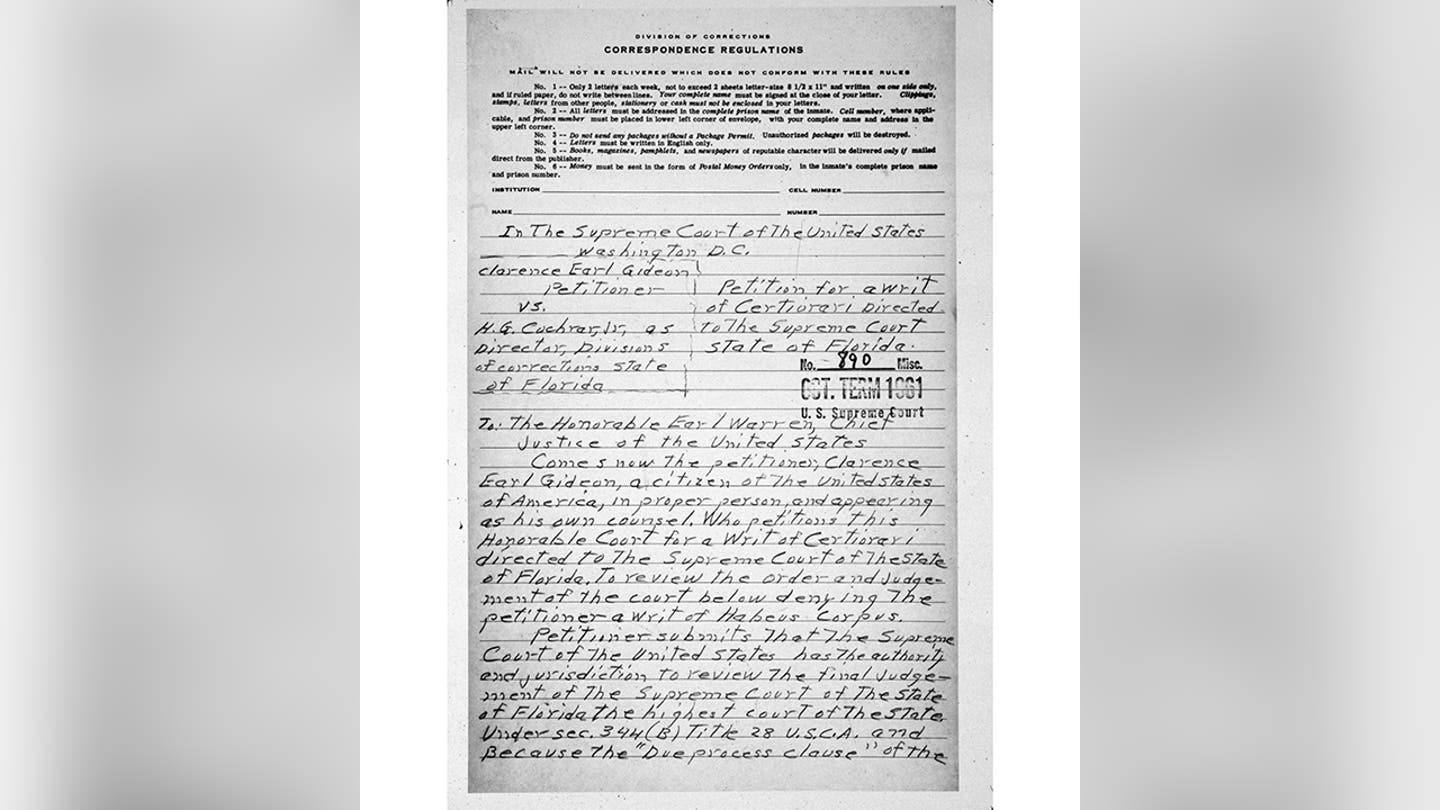 DIVISION OF CORRECTIONS
CORRESPONDENCE REGULATIONS
MAIL WILL NOT BE DELIVERED WHICH DOES NOT CONFORM WITH THESE RULES
No. 1 -- Only 2 letters each week, not to exceed 2 sheets letter-size 8 1/2 x 11" and written on one side only,
and if ruled paper, do not write between lines. Your complete name must be signed at the close of your letter. Clippings,
stamps, letters from other people, stationery or cash must not be enclosed in your letters.
No. 2 -- All letters must be addressed in the complete prison name of the inmate. Cell number, where appli-
cable, and prison number must be placed in lower left corner of envelope, with your complete name and address in the
upper left corner.
No. 3 -- Do not send any packages without a Package Permit. Unauthorized packages will be destroyed.
No. 4 -- Letters must be written in English only.
No. 5 -- Books, magazines, pamphlets, and newspapers of reputable character will be delivered only if mailed
direct from the publisher.
No. 6 -- Money must be sent in the form of Postal Money Orders only, in the inmate's complete prison name
and prison number.
INSTITUTION CELL NUMBER
NAME NUMBER
In The Supreme Court of The United States
Washington D.C.
Clarence Earl Gideon
Petitioner
vs.
H.G. Cochran, Jr, as
Director, Divisions
of corrections State
of Florida
Petition for a writ
of Certiorari Directed
to The Supreme Court
State of Florida.
No. 890 Misc.
OCT. TERM 1961
U. S. Supreme Court
To: The Honorable Earl Warren, Chief
Justice of the United States
Comes now The petitioner, Clarence
Earl Gideon, a citizen of The United states
of America, in proper person, and appearing
as his own counsel. Who petitions this
Honorable Court for a Writ of Certiorari
directed to The Supreme Court of The State
of Florida. To review the order and Judge-
ment of the court below denying The
petitioner a writ of Habeus Corpus.
Petitioner submits That The Supreme
Court of The United States has The authority
and jurisdiction to review The final Judge-
ment of The Supreme Court of The State
of Florida the highest court of The State
Under sec. 344(B) Title 28 U.S.C.A. and
Because The "Due process clause" of the